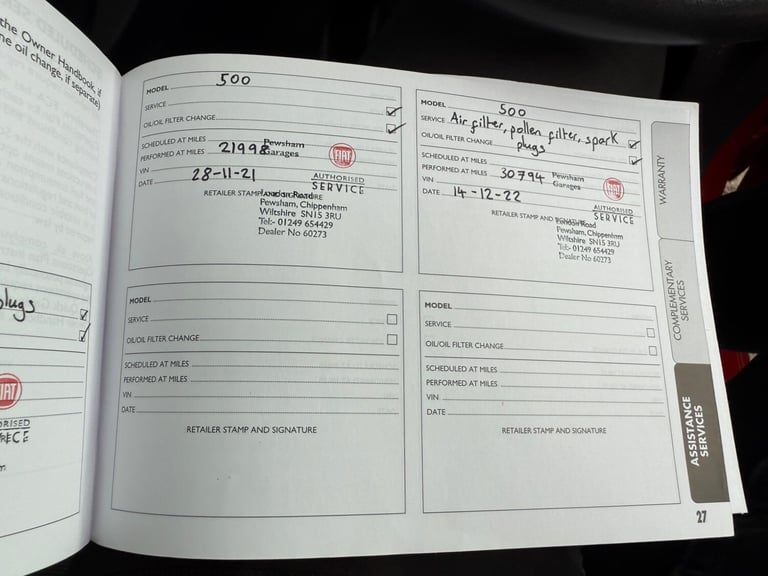 the Owner Handbook, if
ne oil change, if separate)
plugs
FIAT
ORISED
MODEL 500
SERVICE
OIL/OIL FILTER CHANGE
SCHEDULED AT MILES
PERFORMED AT MILES 21998
Pewsham
Garages
VIN
DATE 28-11-21
FIAT
AUTHORISED
SERVICE
RETAILER STAMP AND SIGNATURE
London Road
Pewsham, Chippenham
Wiltshire SN15 3RU
Tel:- 01249 654429
Dealer No 60273
MODEL 500
SERVICE Air filter, pollen filter, spark
OIL/OIL FILTER CHANGE plugs
SCHEDULED AT MILES
PERFORMED AT MILES 30794
Pewsham
Garages
VIN
DATE 14-12-22
FIAT
AUTHORISED
SERVICE
RETAILER STAMP AND SIGNATURE
London Road
Pewsham, Chippenham
Wiltshire SN15 3RU
Tel:- 01249 654429
Dealer No 60273
MODEL
SERVICE
OIL/OIL FILTER CHANGE
SCHEDULED AT MILES
PERFORMED AT MILES
VIN
DATE
RETAILER STAMP AND SIGNATURE
MODEL
SERVICE
OIL/OIL FILTER CHANGE
SCHEDULED AT MILES
PERFORMED AT MILES
VIN
DATE
RETAILER STAMP AND SIGNATURE
WARRANTY
COMPLEMENTARY
SERVICES
ASSISTANCE
SERVICES
27